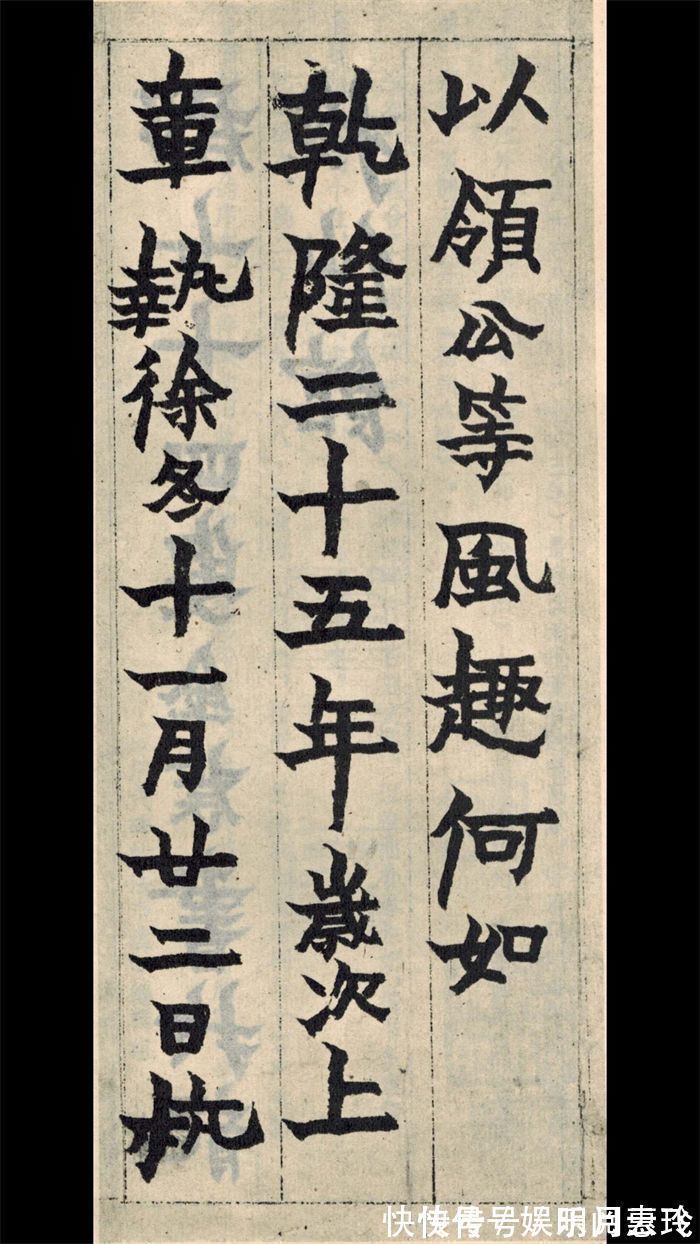 以領公等風趣何如
乾隆二十五年歲次上
章執徐冬十一月廿二日执
快传号